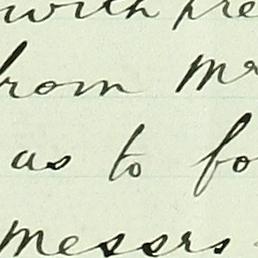 with pre
from Mr
as to fo
Messrs.